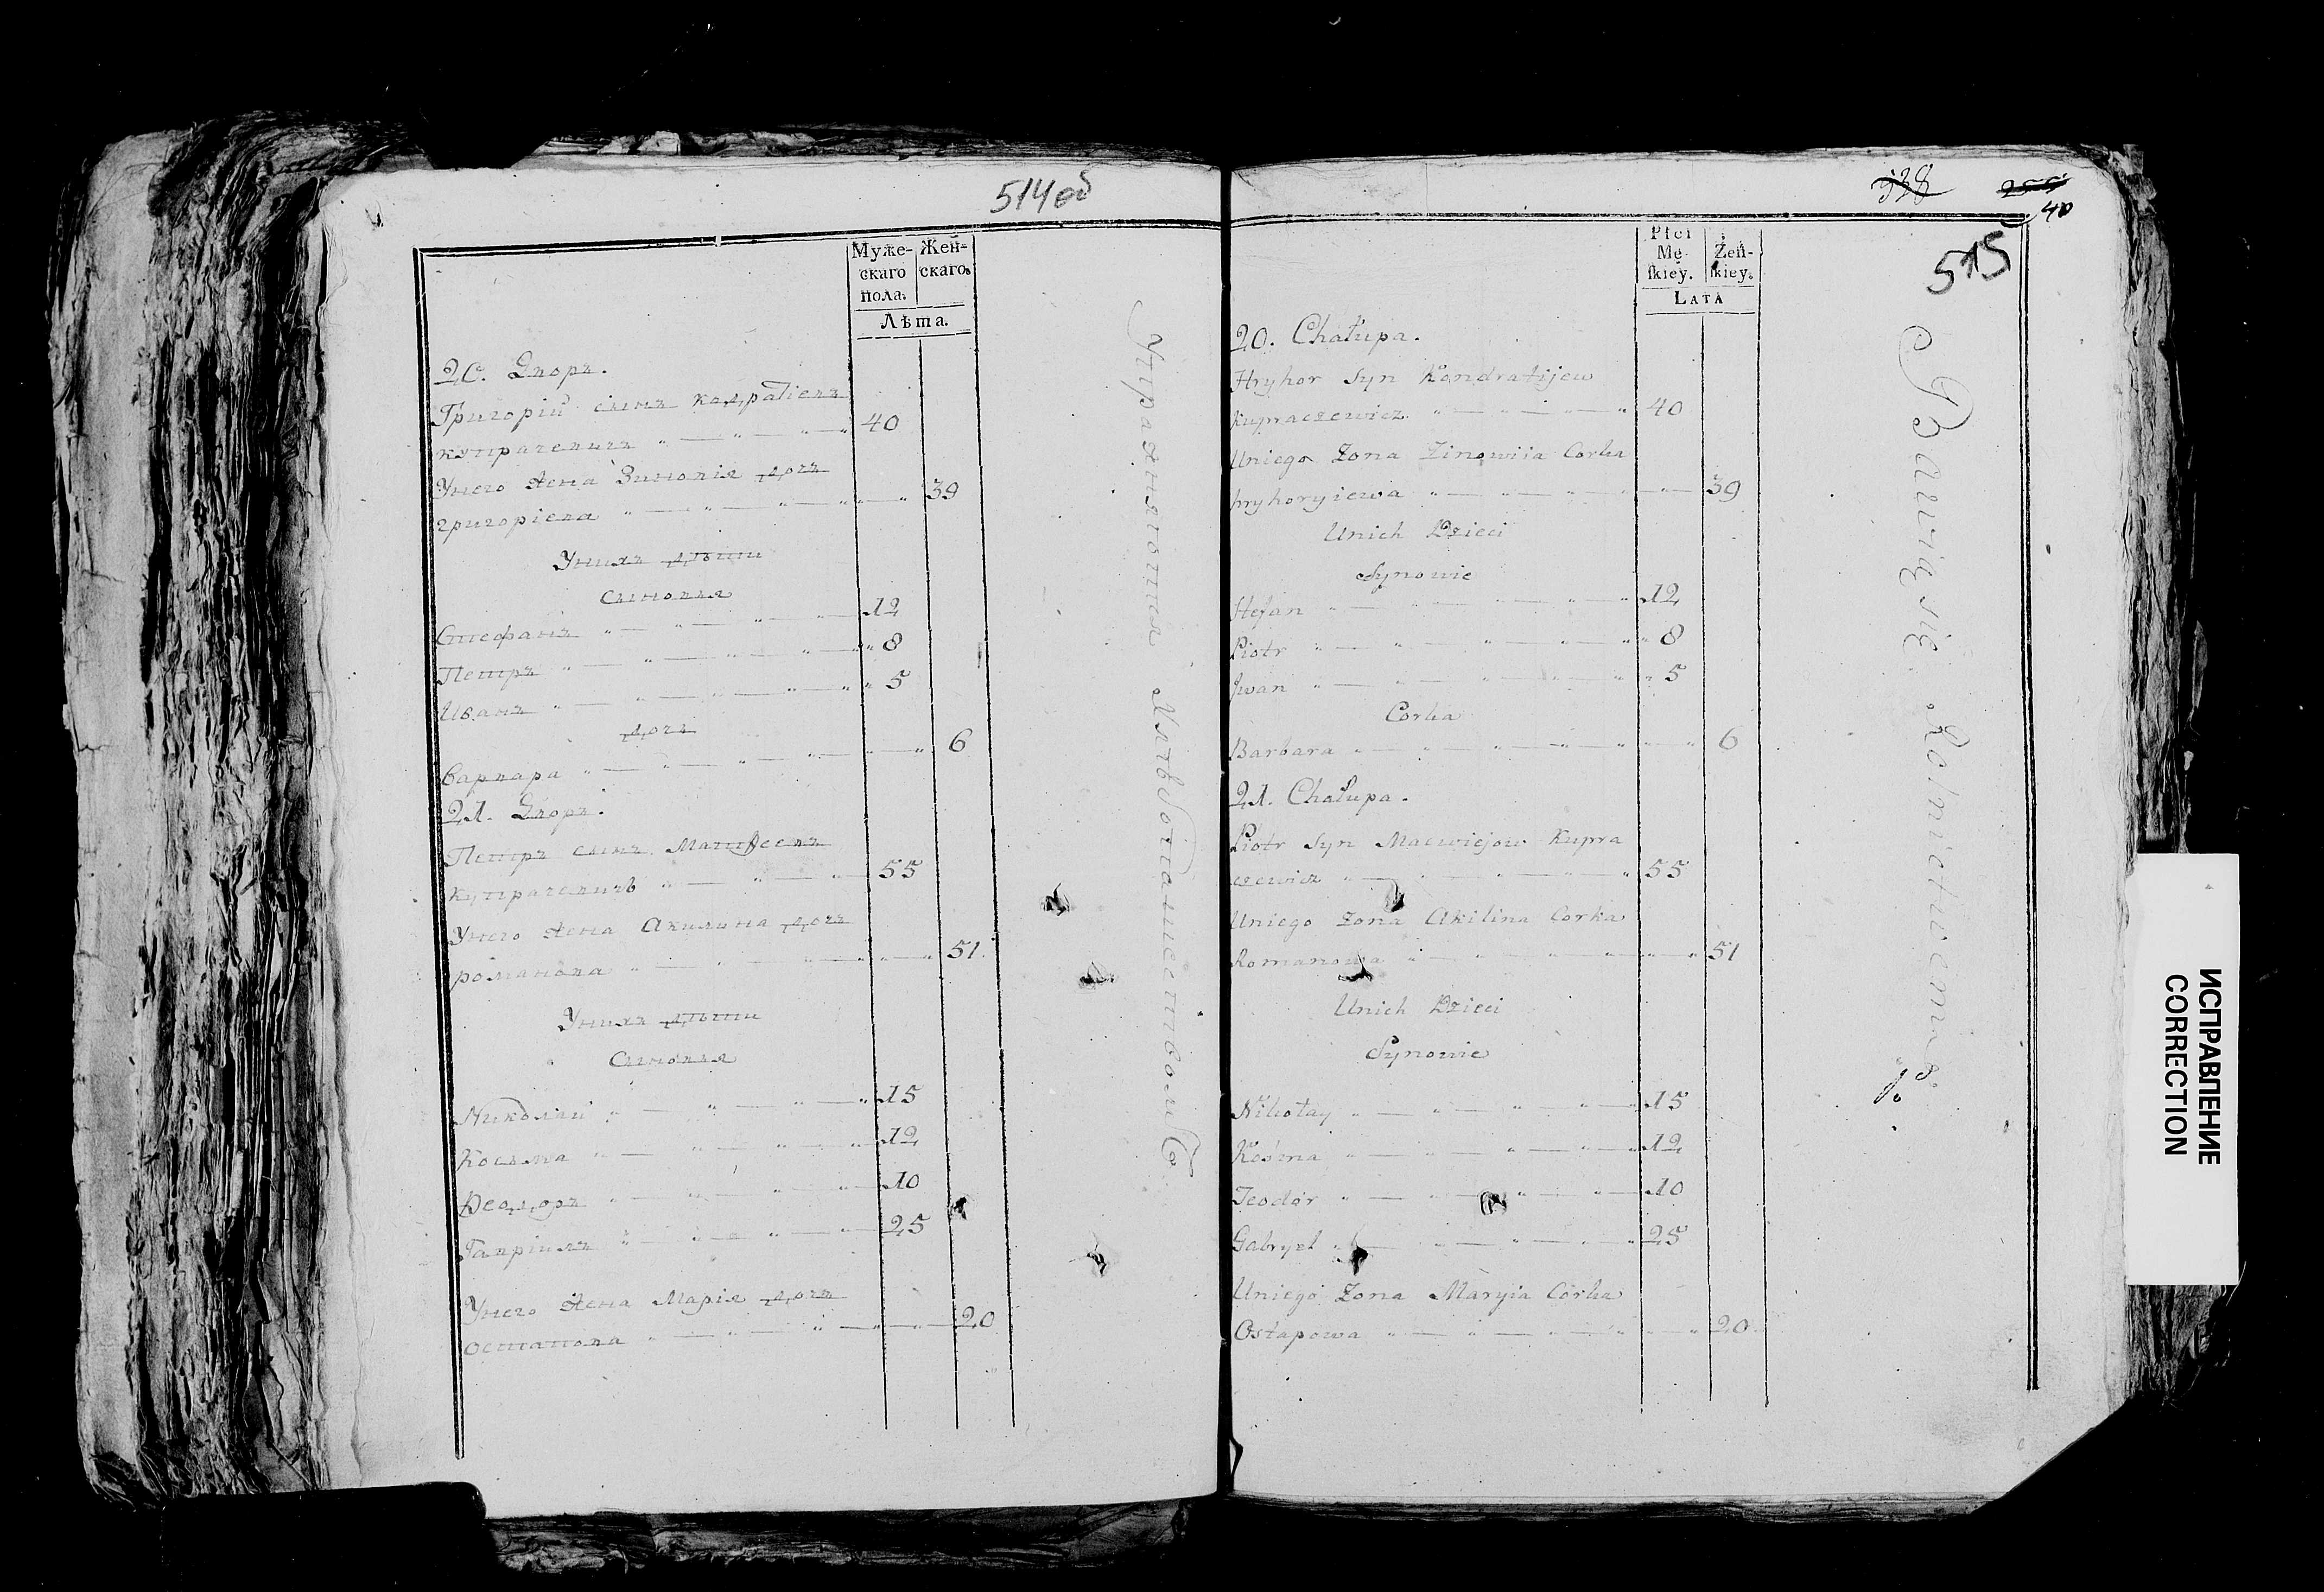 514об
Муже-
скаго
пола.
Жен-
скаго.
Лѣта.
20. Дворъ.
Григорій сынъ кодратіевъ
купрачевичъ 40
Унего жена Зиновія дочь
григоріева 39
Унихъ дѣти
Синовья
Стефанъ 12
Петръ 8
Иванъ 5
дочь
Варвара 6
21. Дворъ.
Петръ сынъ Матфеевъ
купрачевичъ 55
Унего жена Акилина дочь
романова 51.
Унихъ дѣти
Синовья
Николай 15
Косьма 12
Ѳеодоръ 10
Гавріилъ 25
Унего жена Марія дочь
остапова 20
Упражняются Хлѣбопашествомъ
338
255
40
515
Płci
Mę-
ſkiey.
Żeń-
ſkiey.
LATA
20. Chałupa.
Hryhor Syn Kondratijew
Kupraczewicz 40
Uniego Zona Zinowiia Corka
hryhoryiewa 39
Unich Dzieci
Synowie
Stefan 12
Piotr 8
Jwan 5
Corka
Barbara 6
21. Chałupa.
Piotr Syn Macwiejow Kupra
czewicz 55
Uniego Zona Akilina Corka
Romanowa 51
Unich Dzieci
Synowie
Nikołay 15
Kośma 12
Teodor 10
Gabryel 25
Uniego Zona Maryia Córka
Ostapowa 20
Bawią się Rolnictwem
ИСПРАВЛЕНИЕ
CORRECTION